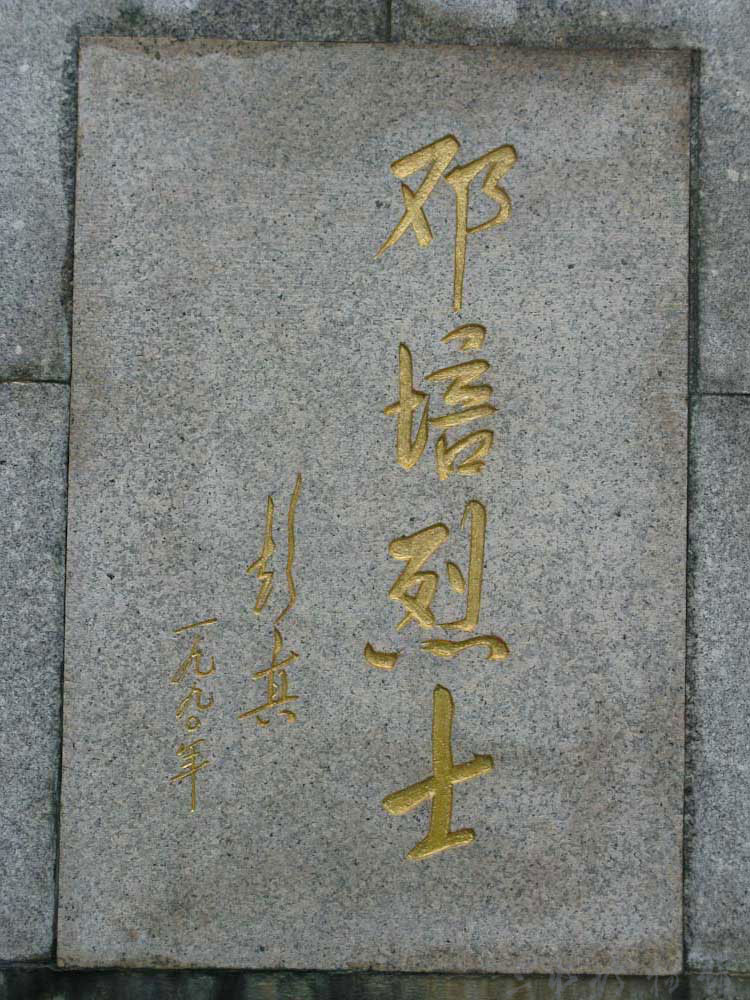 邓培烈士
彭真
一九九〇年